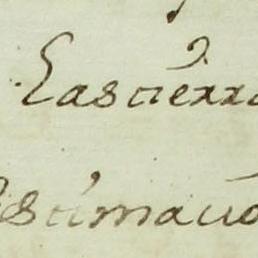 Las tierra
stimauo